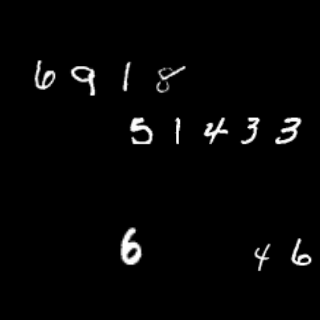 6918
51433
6
46